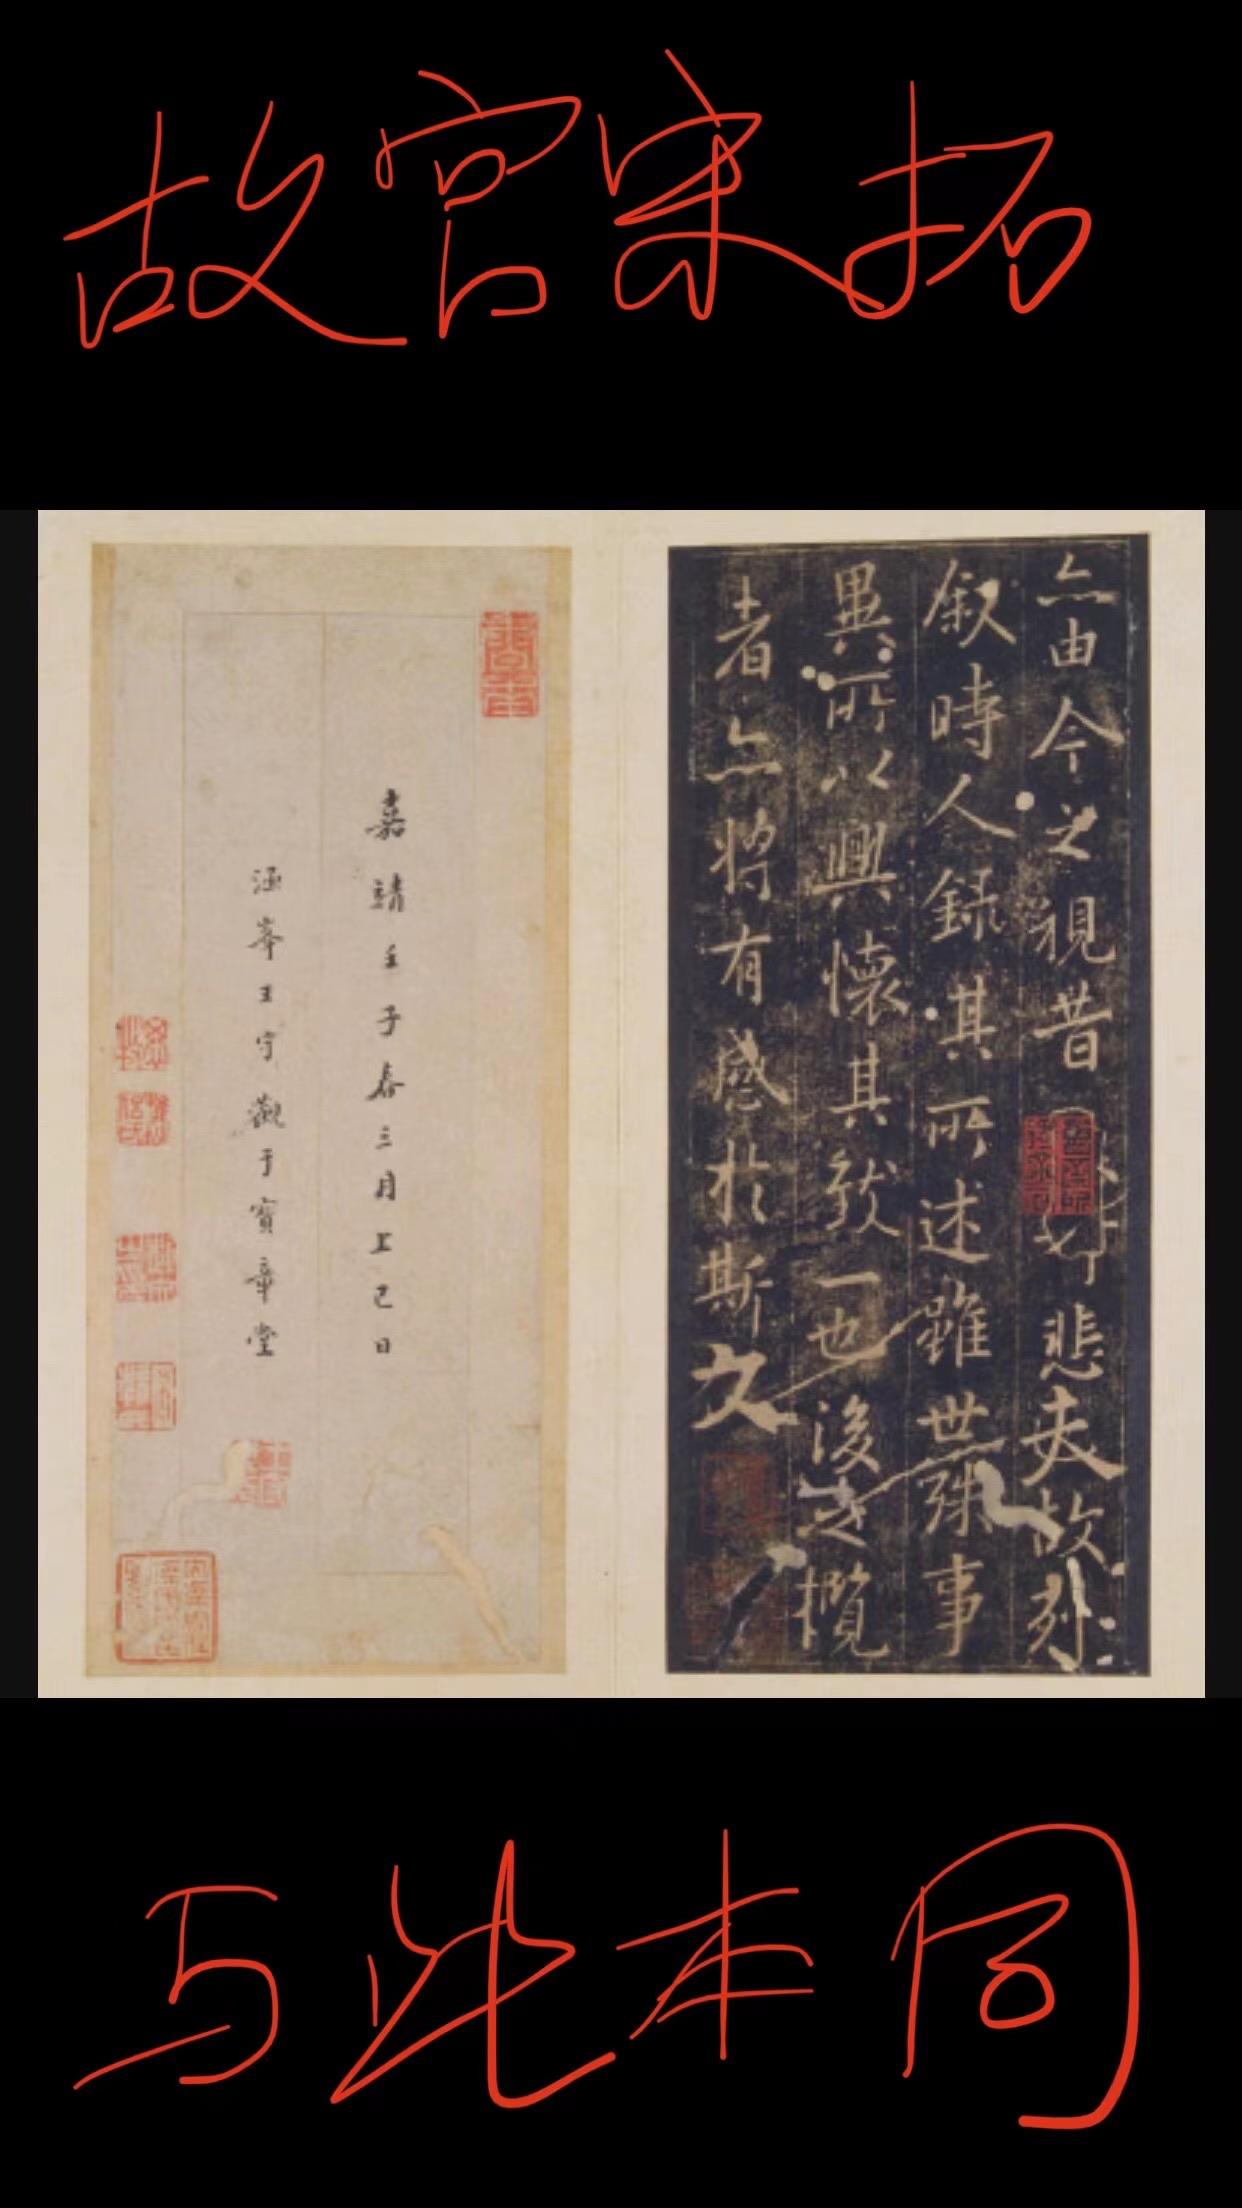 故宫宋拓
亦由今之視昔
悲夫故列
叙時人錄其所述雖世殊事
異所以興懷其致一也後之攬
者亦將有感於斯文
嘉靖壬子春三月上巳日
涵峯王守觀于寶章堂
与此本同